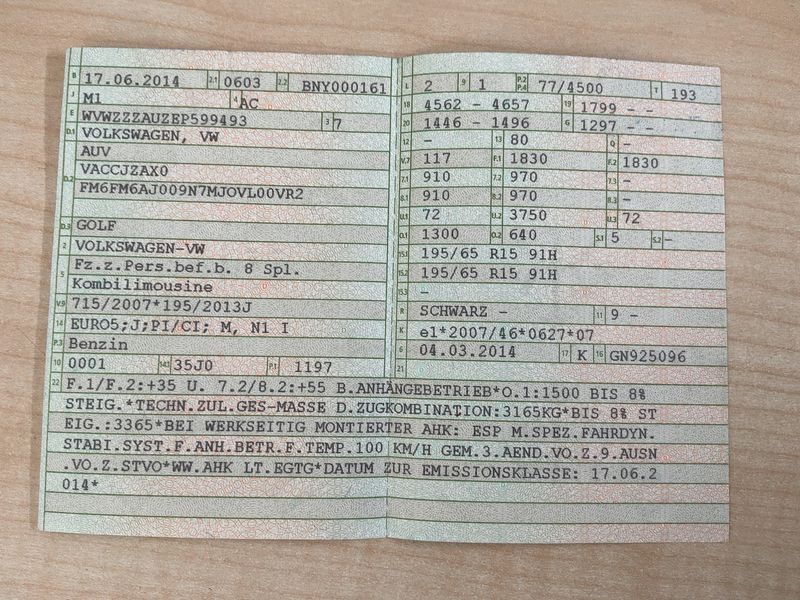 B 17.06.2014 2.1 0603 2.2 BNY000161
J M1 4 AC
E WVWZZZAUZEP599493 3 7
D.1 VOLKSWAGEN, VW
AUV
D.2 VACCJZAX0
FM6FM6AJ009N7MJOVL00VR2
D.3 GOLF
2 VOLKSWAGEN-VW
5 Fz.z.Pers.bef.b. 8 Spl.
Kombilimousine
V.9 715/2007*195/2013J
14 EURO5;J;PI/CI; M, N1 I
P.3 Benzin
10 0001 14.1 35J0 P.1 1197
L 2 9 1 P.2 P.4 77/4500 T 193
18 4562 - 4657 19 1799 - -
20 1446 - 1496 G 1297 - -
12 - 13 80 Q -
V.7 117 F.1 1830 F.2 1830
7.1 910 7.2 970 7.3 -
8.1 910 8.2 970 8.3 -
U.1 72 U.2 3750 U.3 72
O.1 1300 O.2 640 S.1 5 S.2 -
15.1 195/65 R15 91H
15.2 195/65 R15 91H
15.3 -
R SCHWARZ - 11 9 -
K e1*2007/46*0627*07
6 04.03.2014 17 K 16 GN925096
21
22 F.1/F.2:+35 U. 7.2/8.2:+55 B.ANHÄNGEBETRIEB*O.1:1500 BIS 8%
STEIG.*TECHN.ZUL.GES-MASSE D.ZUGKOMBINATION:3165KG*BIS 8% ST
EIG.:3365*BEI WERKSEITIG MONTIERTER AHK: ESP M.SPEZ.FAHRDYN.
STABI.SYST.F.ANH.BETR.F.TEMP.100 KM/H GEM.3.AEND.VO.Z.9.AUSN
.VO.Z.STVO*WW.AHK LT.EGTG*DATUM ZUR EMISSIONSKLASSE: 17.06.2
014*